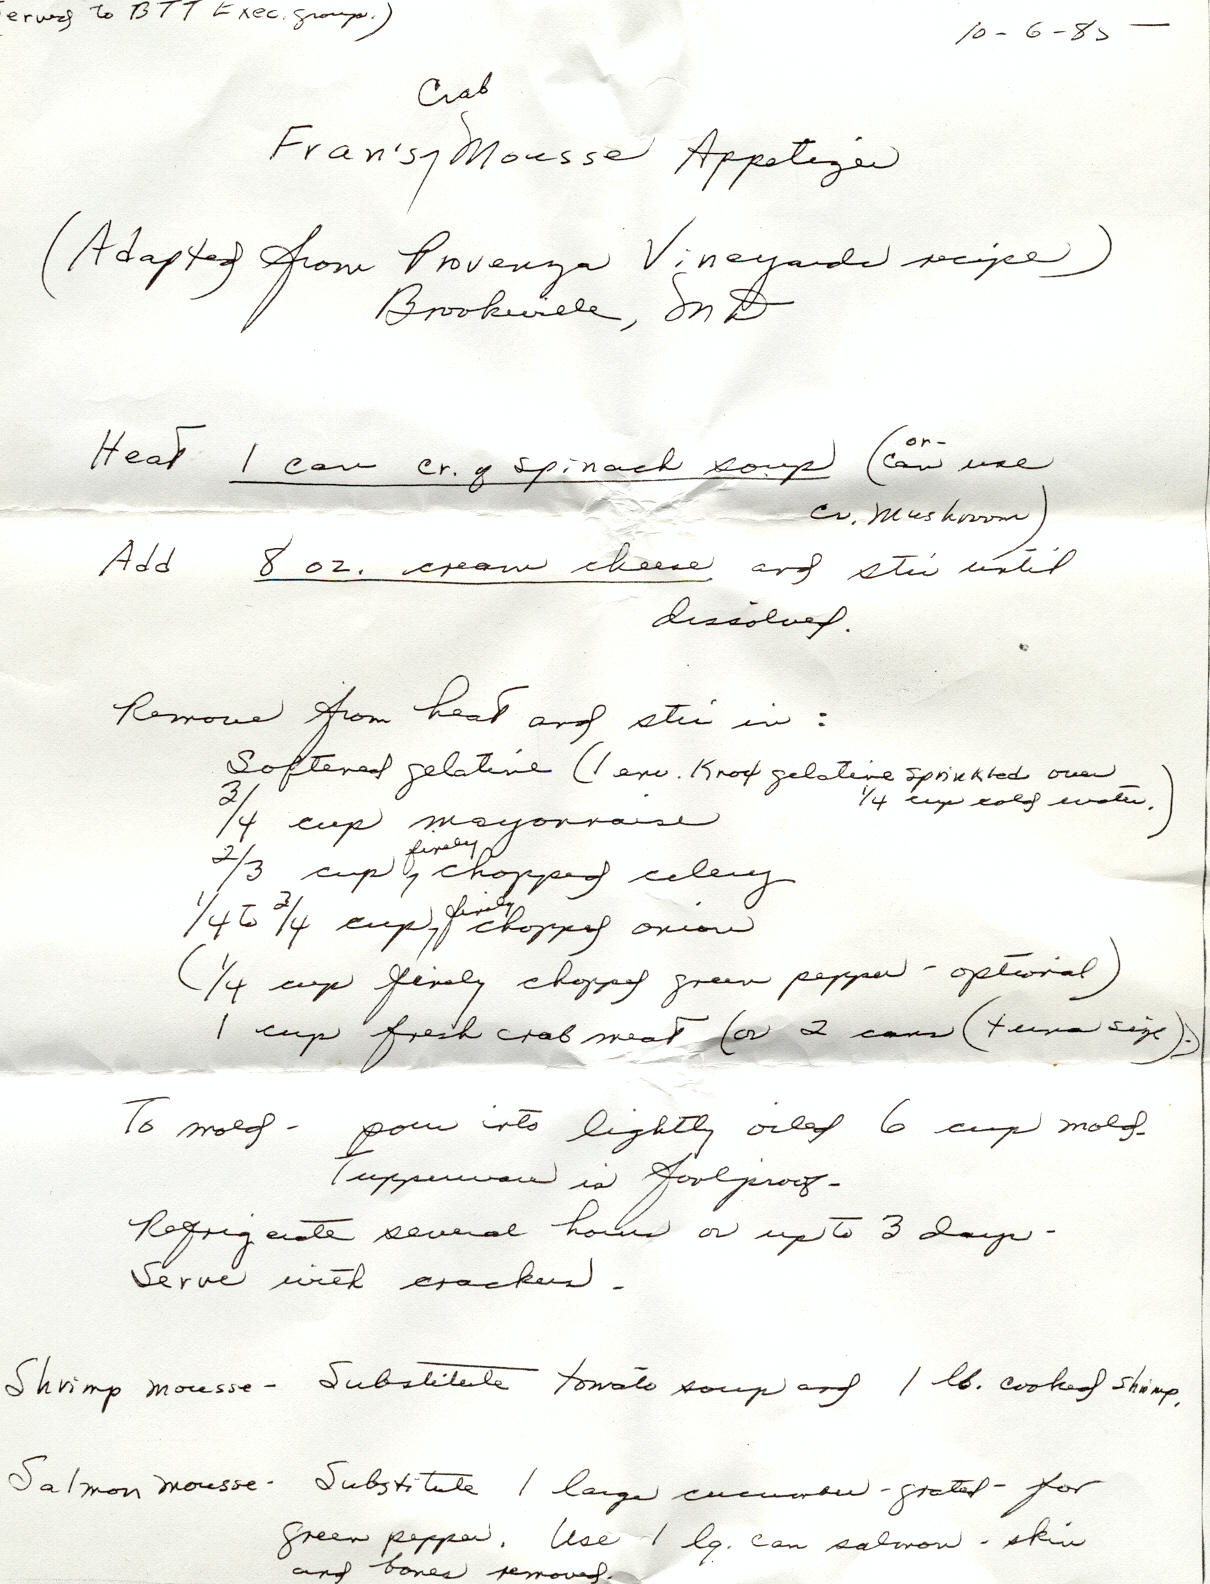 served to BTT Exec. group.)
10-6-85
Crab
Fran's Mousse Appetizer
(Adapted from Provenza Vineyards recipe)
Brookeville, MD
Heat 1 can cr. of spinach soup (or-
can use
cr. Mushroom)
Add 8 oz. cream cheese and stir until
dissolved.
Remove from heat and stir in:
Softened gelatine (1 env. Knox gelatine sprinkled over
1/4 cup cold water.)
3/4 cup mayonnaise
2/3 cup, finely chopped celery
1/4 to 3/4 cup, finely chopped onion
(1/4 cup finely chopped green pepper - optional)
1 cup fresh crab meat (or 2 cans (tuna size).)
To mold - pour into lightly oiled 6 cup mold.
Tupperware is foolproof-
Refrigerate several hours or up to 3 days-
Serve with crackers.
Shrimp mousse - Substitute tomato soup and 1 lb. cooked shrimp.
Salmon mousse - Substitute 1 large cucumber - grated - for
green pepper. Use 1 lg. can salmon - skin
and bones removed.